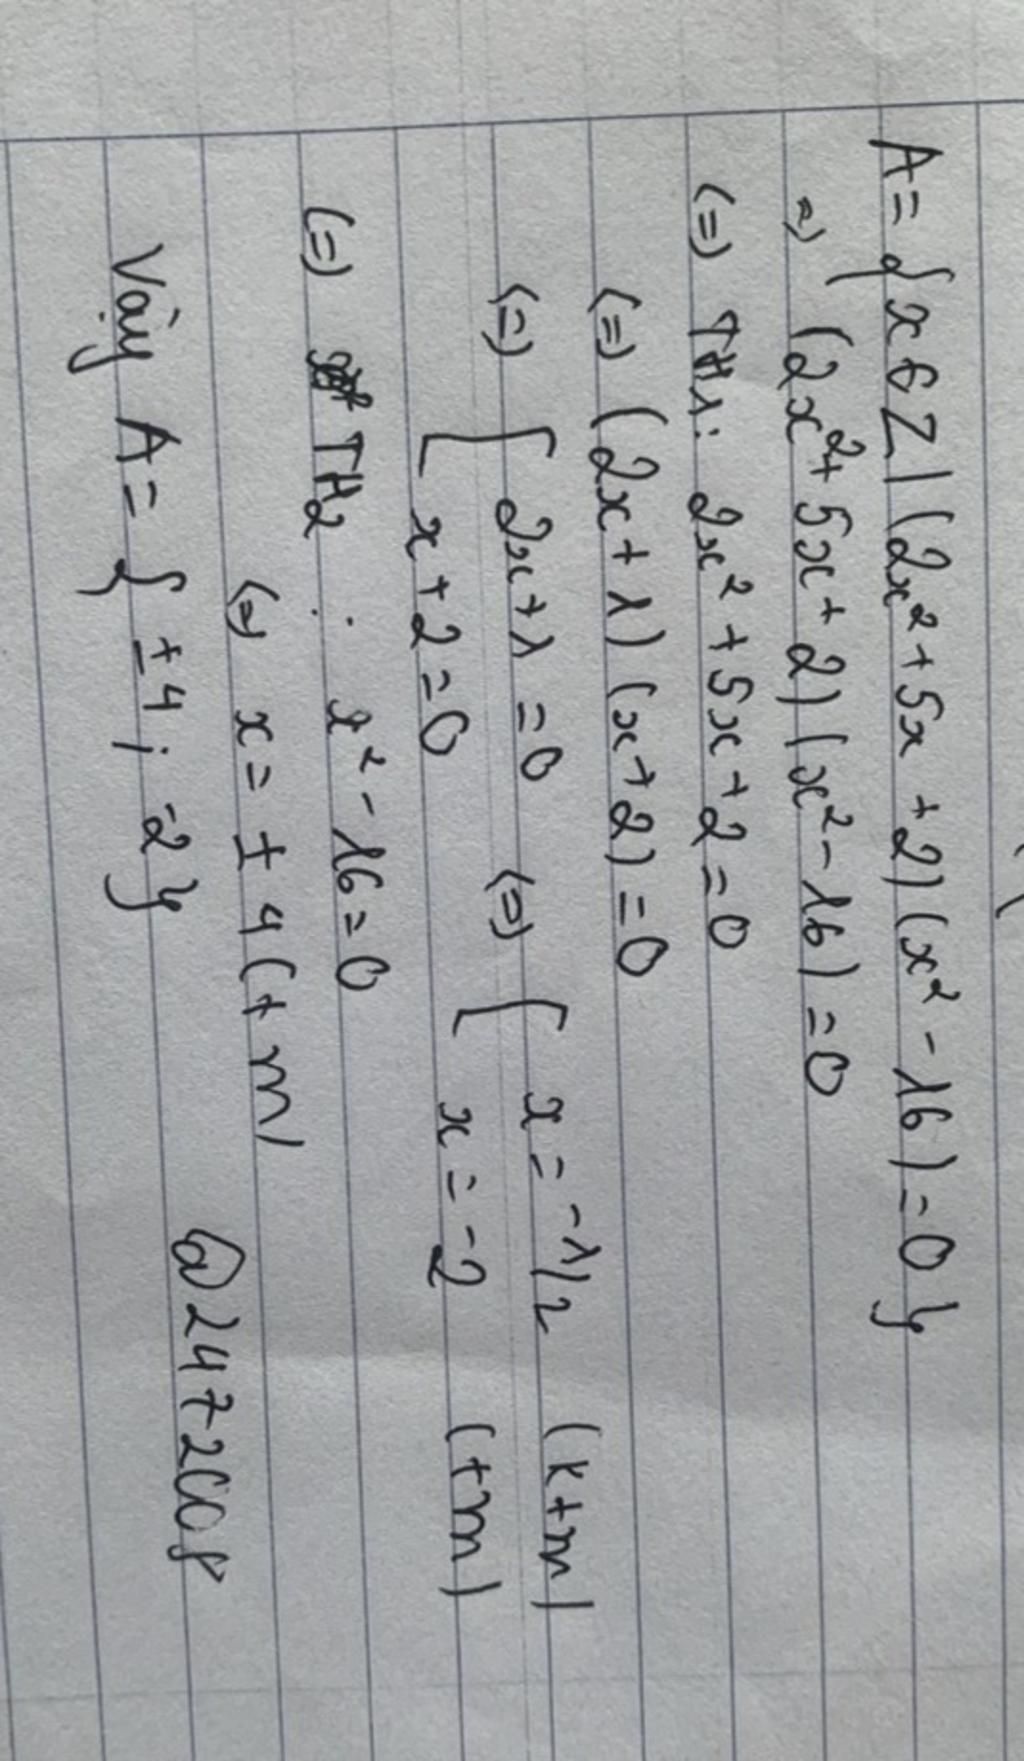 A = { x ∈ Z | (2x² + 5x + 2) (x² - 16) = 0 }
=> (2x² + 5x + 2) (x² - 16) = 0
(=) TH1: 2x² + 5x + 2 = 0
(=) (2x + 1) (x + 2) = 0
(=) [ 2x + 1 = 0 (=) [ x = -1/2 (ktm)
x + 2 = 0 x = -2 (tm)
(=) TH2 : x² - 16 = 0
(=) x = ± 4 (tm)
Vậy A = { ±4 ; -2 }
@2472008